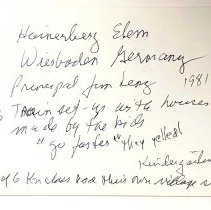 Hainerberg Elem
Wiesbaden Germany
Principal Jim Lenz 1981
Train set-up with houses
made by the kids
"go faster" they yelled
Kindergarten
of 6 K classes had their own village